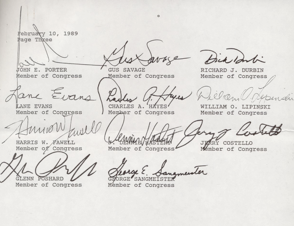 February 10, 1989
Page Three
Gus Savage
JOHN E. PORTER GUS SAVAGE RICHARD J. DURBIN
Member of Congress Member of Congress Member of Congress
Lane Evans Charles A. Hayes
LANE EVANS CHARLES A. HAYES WILLIAM O. LIPINSKI
Member of Congress Member of Congress Member of Congress
Harris W. Fawell Jerry Costello
HARRIS W. FAWELL J. DENNIS HASTERT JERRY COSTELLO
Member of Congress Member of Congress Member of Congress
George E. Sangmeister
GLENN POSHARD GEORGE SANGMEISTER
Member of Congress Member of Congress